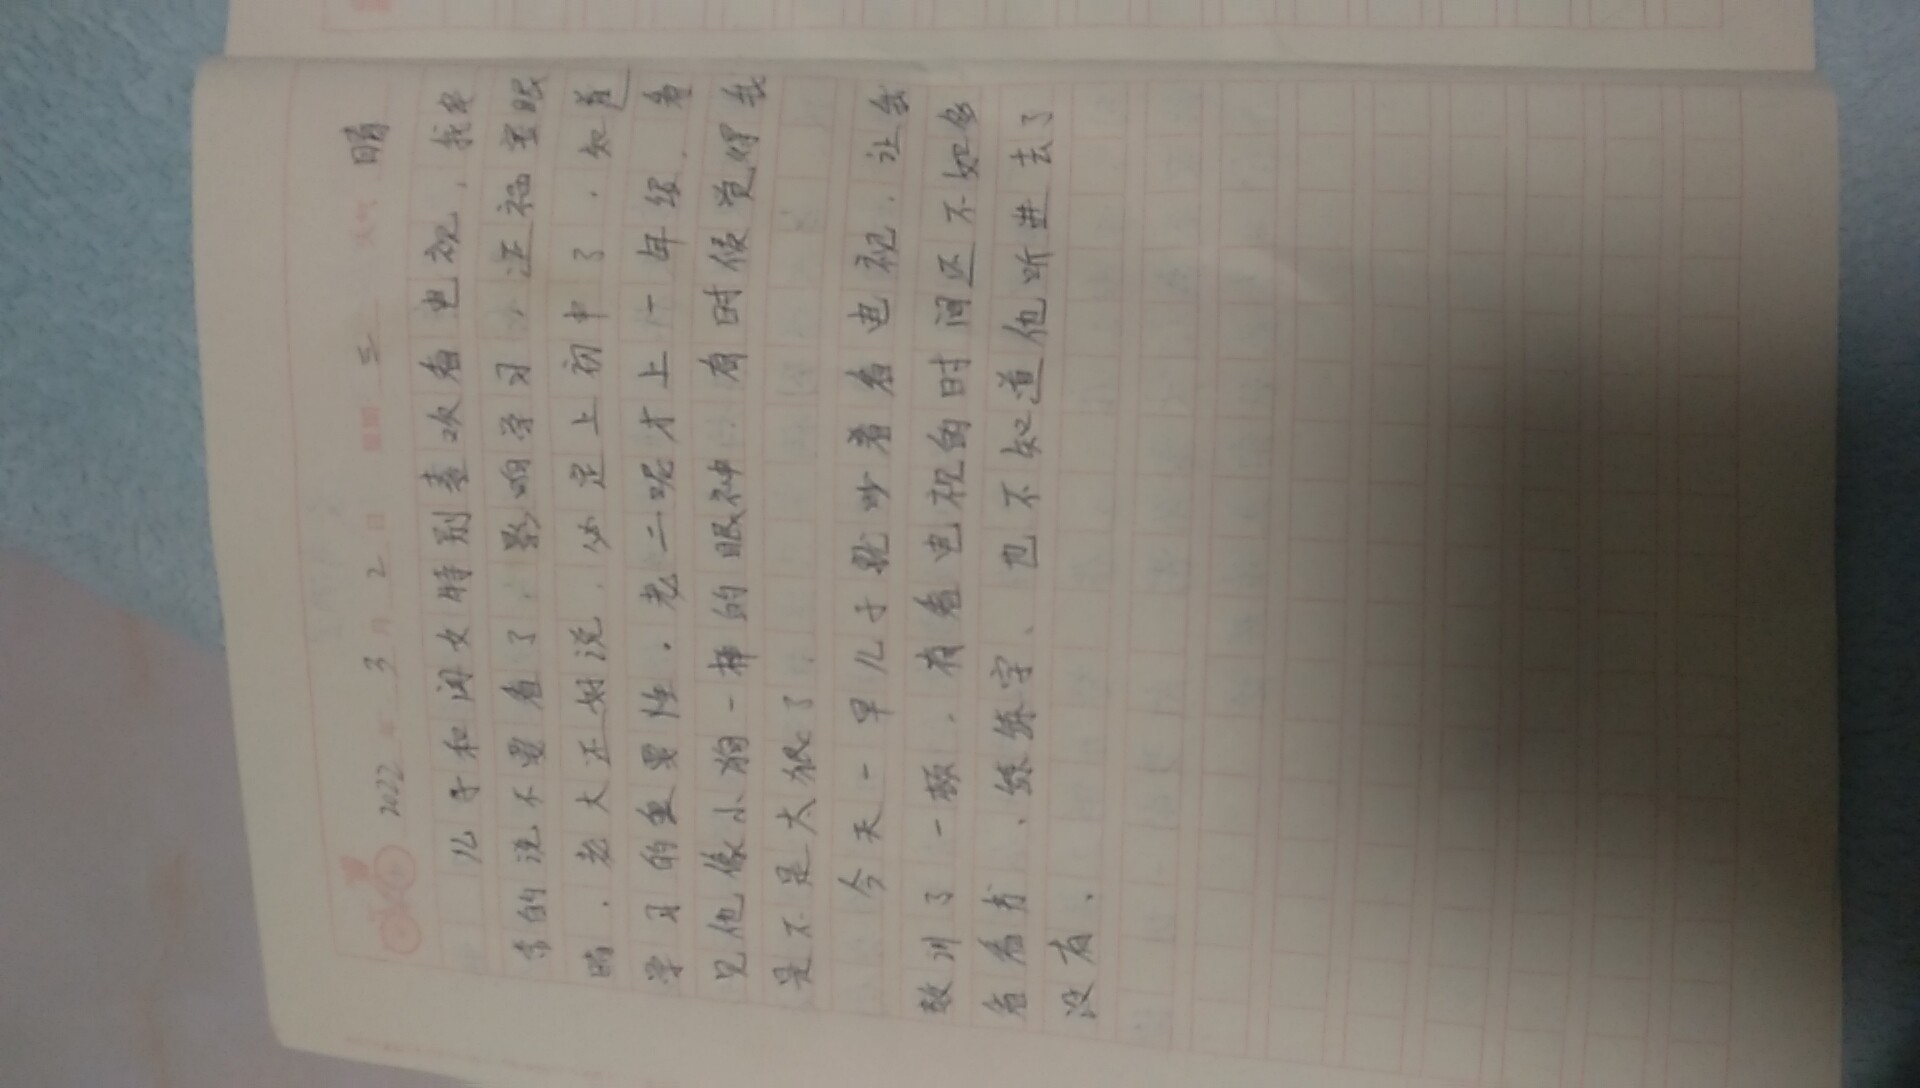 2022年 3月 2日 星期三 天气 晴
儿子和闺女特别喜欢看电视,我总
的说不要看了,影响学习,还祸害眼
睛,老大还好说,必定上初中了,知道
学习的重要性,老二呢才上一年级,看
见他像小狗一样的眼神,有时候觉得我
是不是太狠了,
今天一早儿子就吵着看电视,让我
教训了一顿,有看电视的时间还不如多
看看书、练练字、也不知道他听进去了
没有,